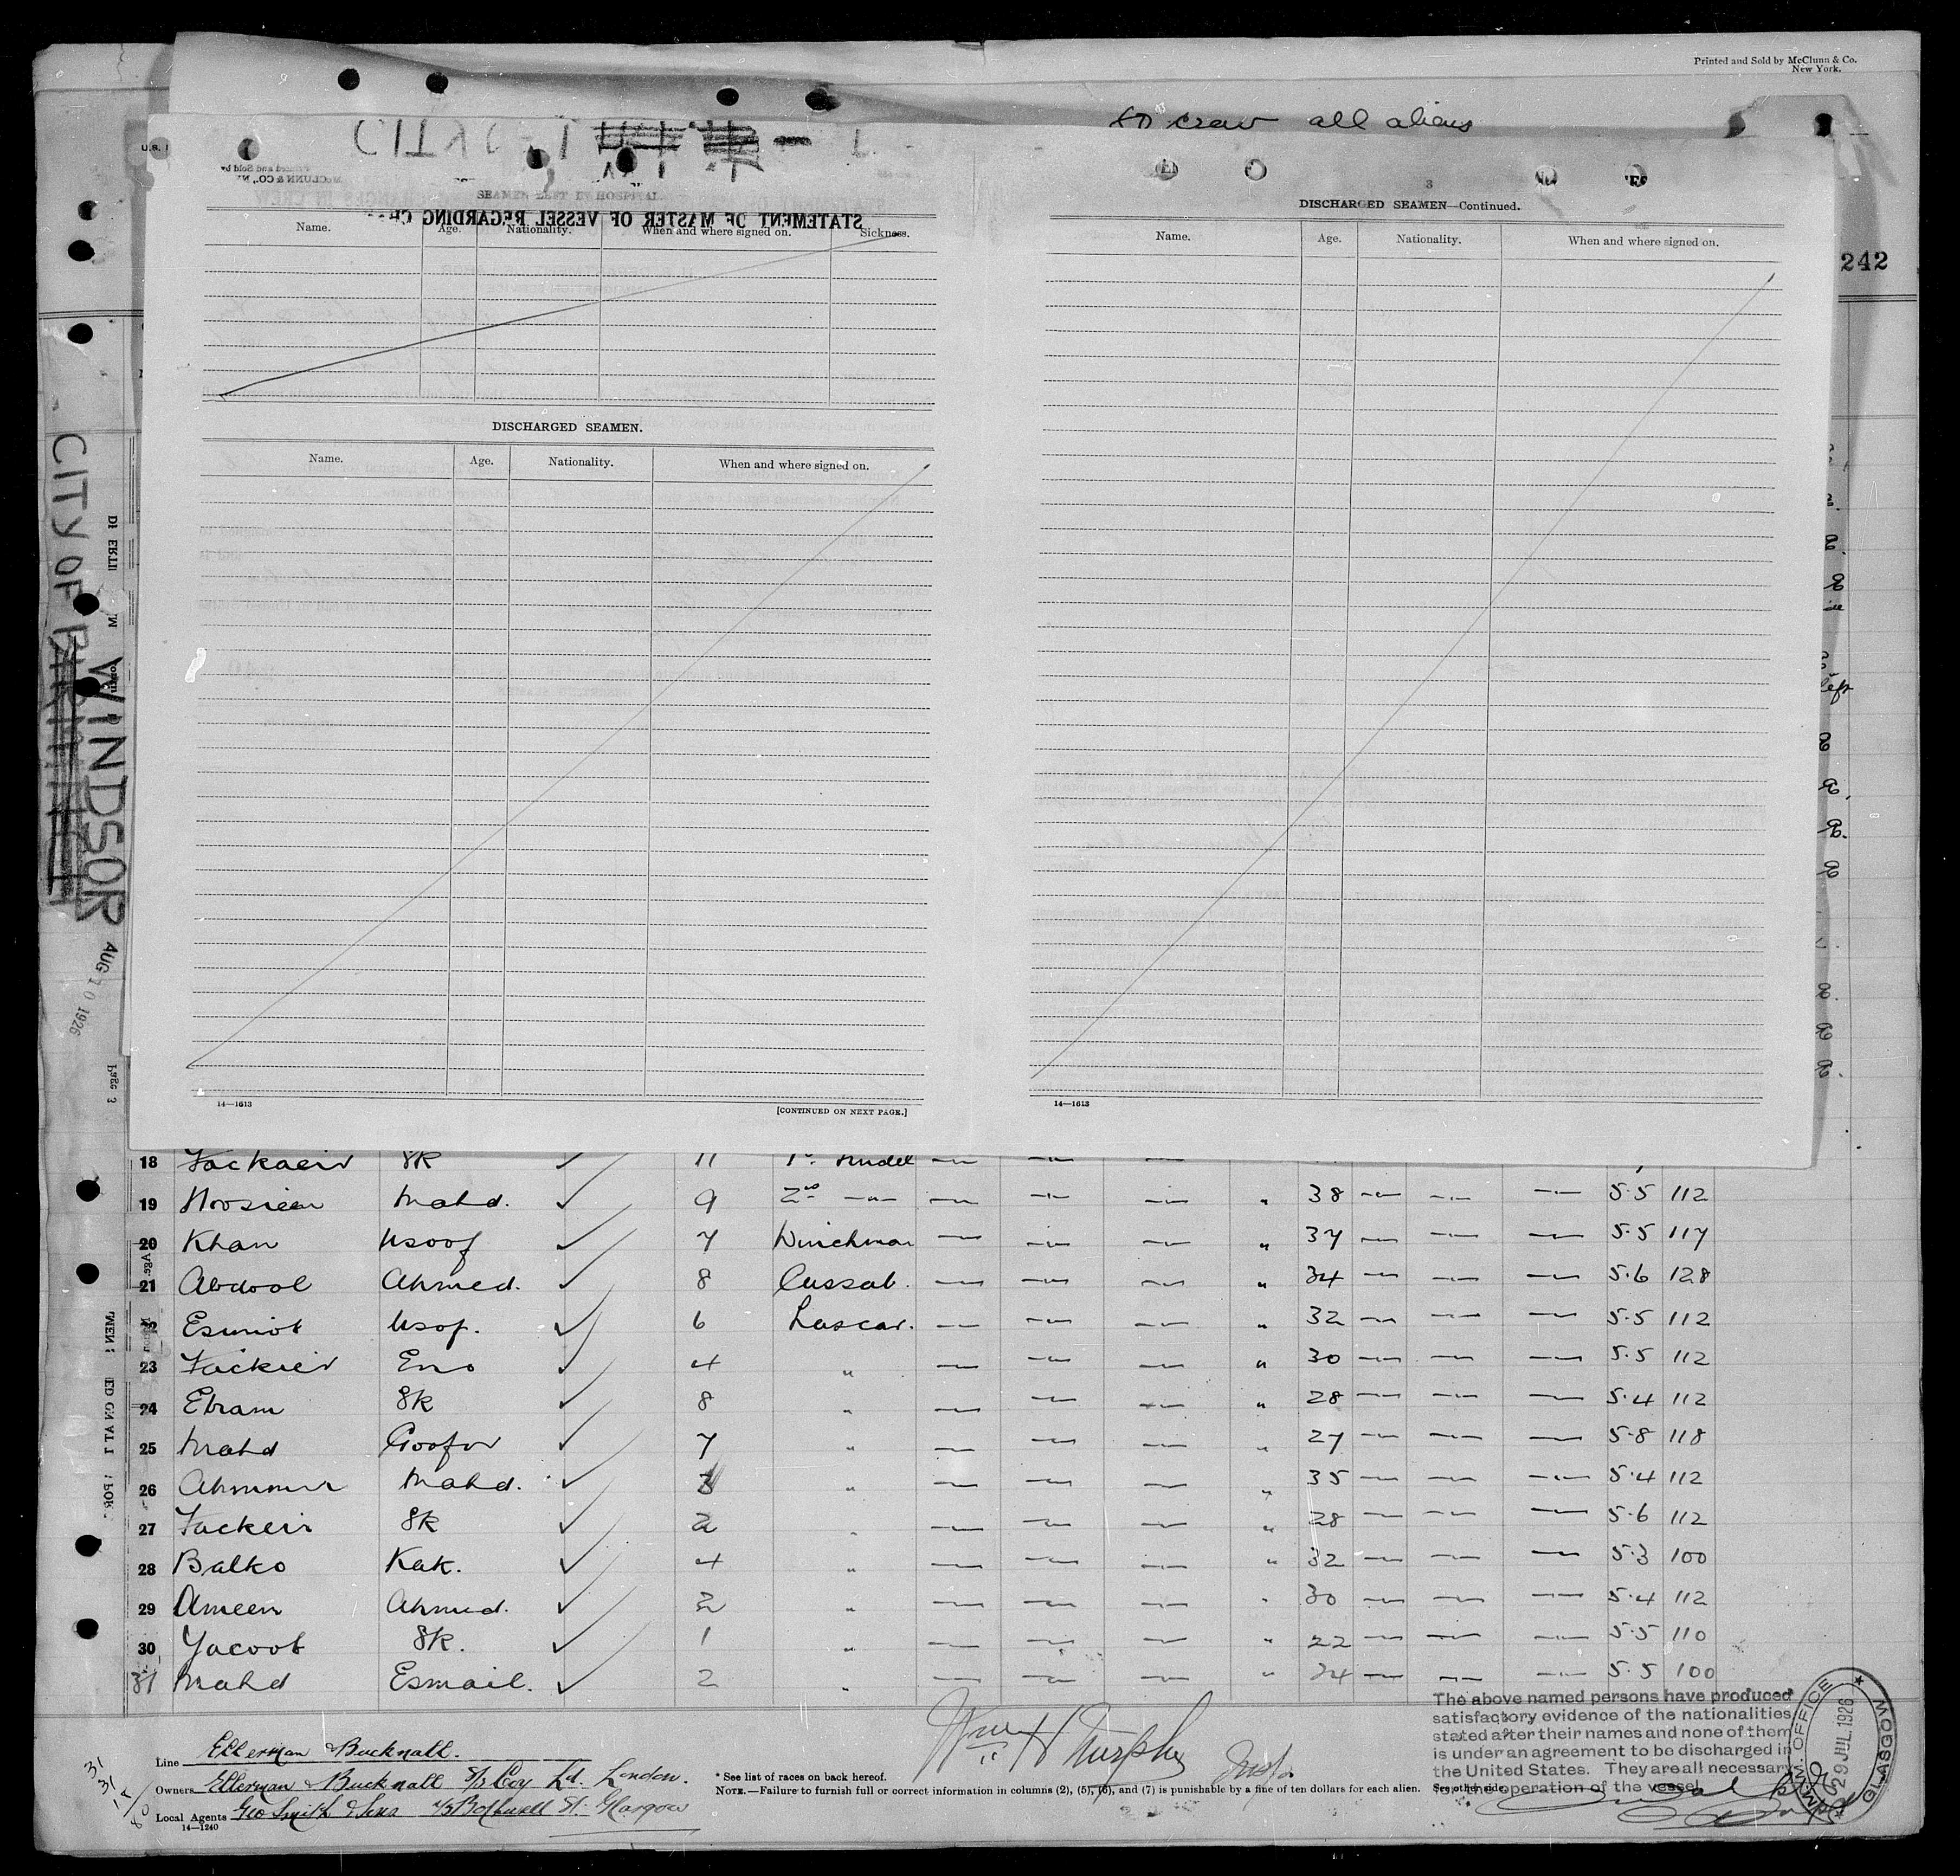 Printed and Sold by McClunn & Co.
New York.
80 crew all aliens
242
SEAMEN LEFT IN HOSPITAL
STATEMENT OF MASTER OF VESSEL REGARDING
Name. Age. Nationality. When and where signed on. Sickness.
DISCHARGED SEAMEN.
Name. Age. Nationality. When and where signed on.
14—1613
[CONTINUED ON NEXT PAGE.]
3
DISCHARGED SEAMEN—Continued.
Name. Age. Nationality. When and where signed on.
14—1613
CITY OF
WINDSOR
AUG 10 1926
Page 3
18 Fackaeir SK 11 1st Tindel — — —
19 Hoosieen Mahd. 9 2nd —"— — — — " 38 — — — 5.5 112
20 Khan Usoof 7 Winchman — — — " 37 — — — 5.5 117
21 Abdool Ahmed. 8 Cassab. — — — " 34 — — — 5.6 128
22 Esmiot Usof. 6 Lascar. — — — " 32 — — — 5.5 112
23 Fackeir Eno 4 " — — — " 30 — — — 5.5 112
24 Ebram SK 8 " — — — " 28 — — — 5.4 112
25 Mahd Goofor 7 " — — — " 27 — — — 5.8 118
26 Ahmmur Mahd. 3 " — — — " 35 — — — 5.4 112
27 Fackeir SK 2 " — — — " 28 — — — 5.6 112
28 Balko Kak. 4 " — — — " 32 — — — 5.3 100
29 Ameen Ahmed. 2 " — — — " 30 — — — 5.4 112
30 Yacoob SK. 1 " — — — " 22 — — — 5.5 110
31 Mahd Esmail. 2 " — — — " 24 — — — 5.5 100
Line Ellerman & Bucknall.
Owners Ellerman & Bucknall S/S Coy Ld. London.
Local Agents Geo Smith & Sons 75 Bothwell St. Glasgow
14—1240
31
31
18
80
Wm H Murphy
* See list of races on back hereof.
NOTE.—Failure to furnish full or correct information in columns (2), (5), (6), and (7) is punishable by a fine of ten dollars for each alien. See other side.
The above named persons have produced
satisfactory evidence of the nationalities
stated after their names and none of them
is under an agreement to be discharged in
the United States. They are all necessary
for the operation of the vessel.
IMM. OFFICE
29 JUL. 1926
GLASGOW